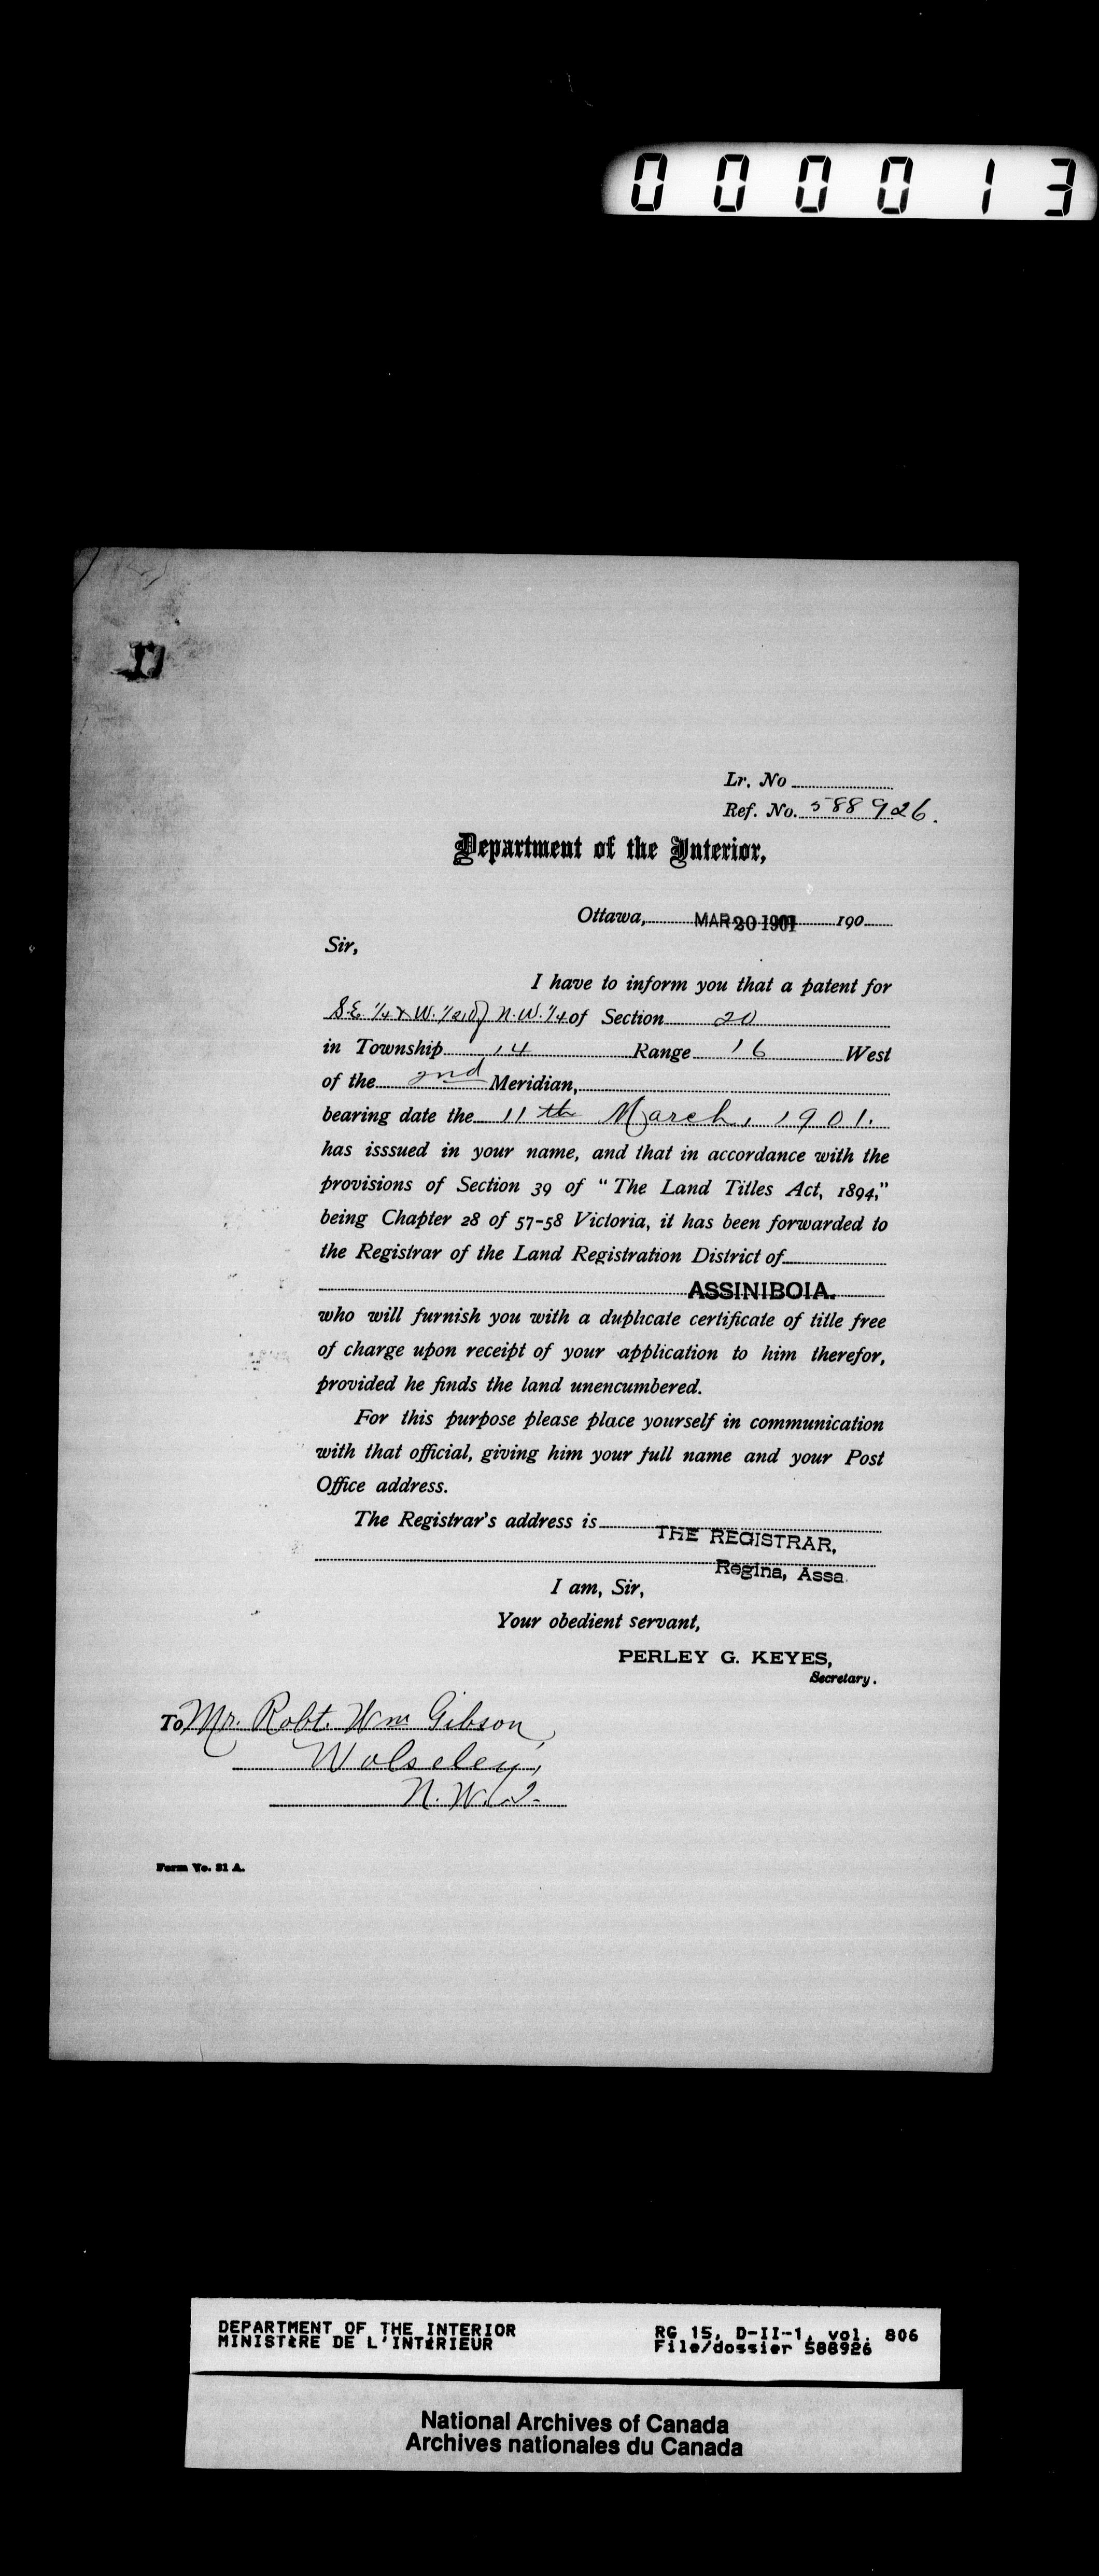 000013
Lr. No
Ref. No. 588926.
Department of the Interior,
Ottawa, MAR 20 1901 190
Sir,
I have to inform you that a patent for
S.E. 1/4 & W. 1/2 of N.W. 1/4 of Section 20
in Township 14 Range 16 West
of the 2nd Meridian,
bearing date the 11th March, 1901.
has isssued in your name, and that in accordance with the
provisions of Section 39 of "The Land Titles Act, 1894,"
being Chapter 28 of 57-58 Victoria, it has been forwarded to
the Registrar of the Land Registration District of
ASSINIBOIA.
who will furnish you with a duplicate certificate of title free
of charge upon receipt of your application to him therefor,
provided he finds the land unencumbered.
For this purpose please place yourself in communication
with that official, giving him your full name and your Post
Office address.
The Registrar's address is THE REGISTRAR,
Regina, Assa.
I am, Sir,
Your obedient servant,
PERLEY G. KEYES,
Secretary.
To Mr. Robt. Wm Gibson,
Wolseley,
N.W.T.
Form No. 31 A.
DEPARTMENT OF THE INTERIOR RG 15, D-II-1, vol. 806
MINISTÈRE DE L'INTÉRIEUR File/dossier 588926
National Archives of Canada
Archives nationales du Canada